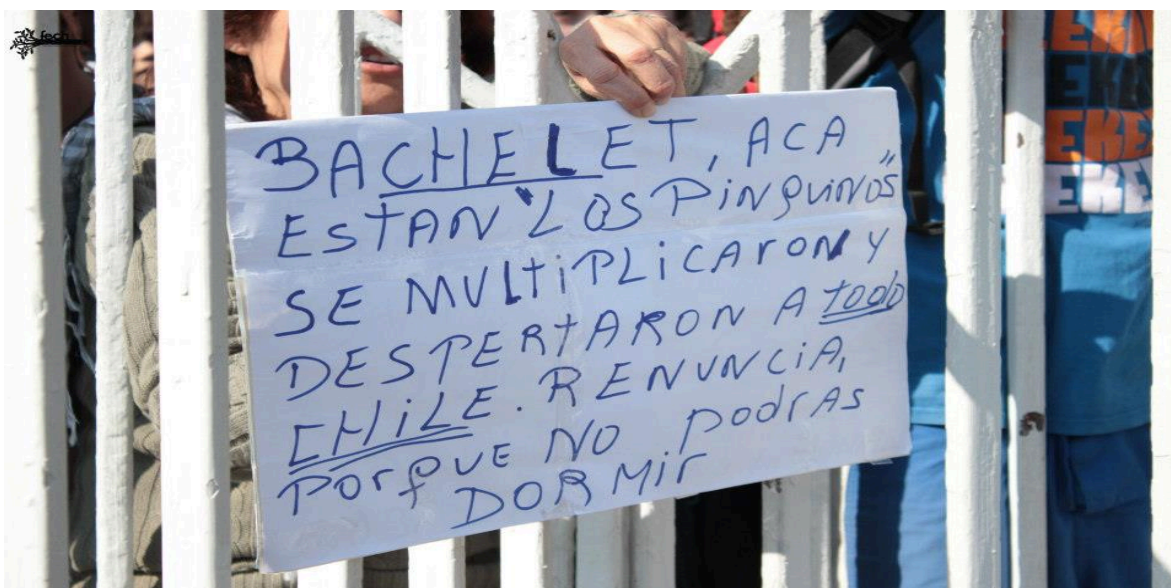 fech
BACHELET, ACA
ESTAN "LOS PINGUINOS"
SE MULTIPLICARON Y
DESPERTARON A todo
CHILE. RENUNCIA,
PORQUE NO PODRAS
DORMIR